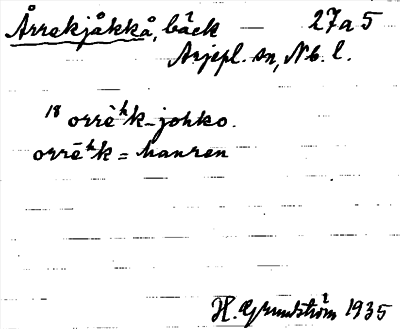 Årrekjåkkå, bäck 27a5
Arjepl. sn, Nb. l.
18 orrēʰk-johko.
orrēʰk = hanren
H. Grundström 1935